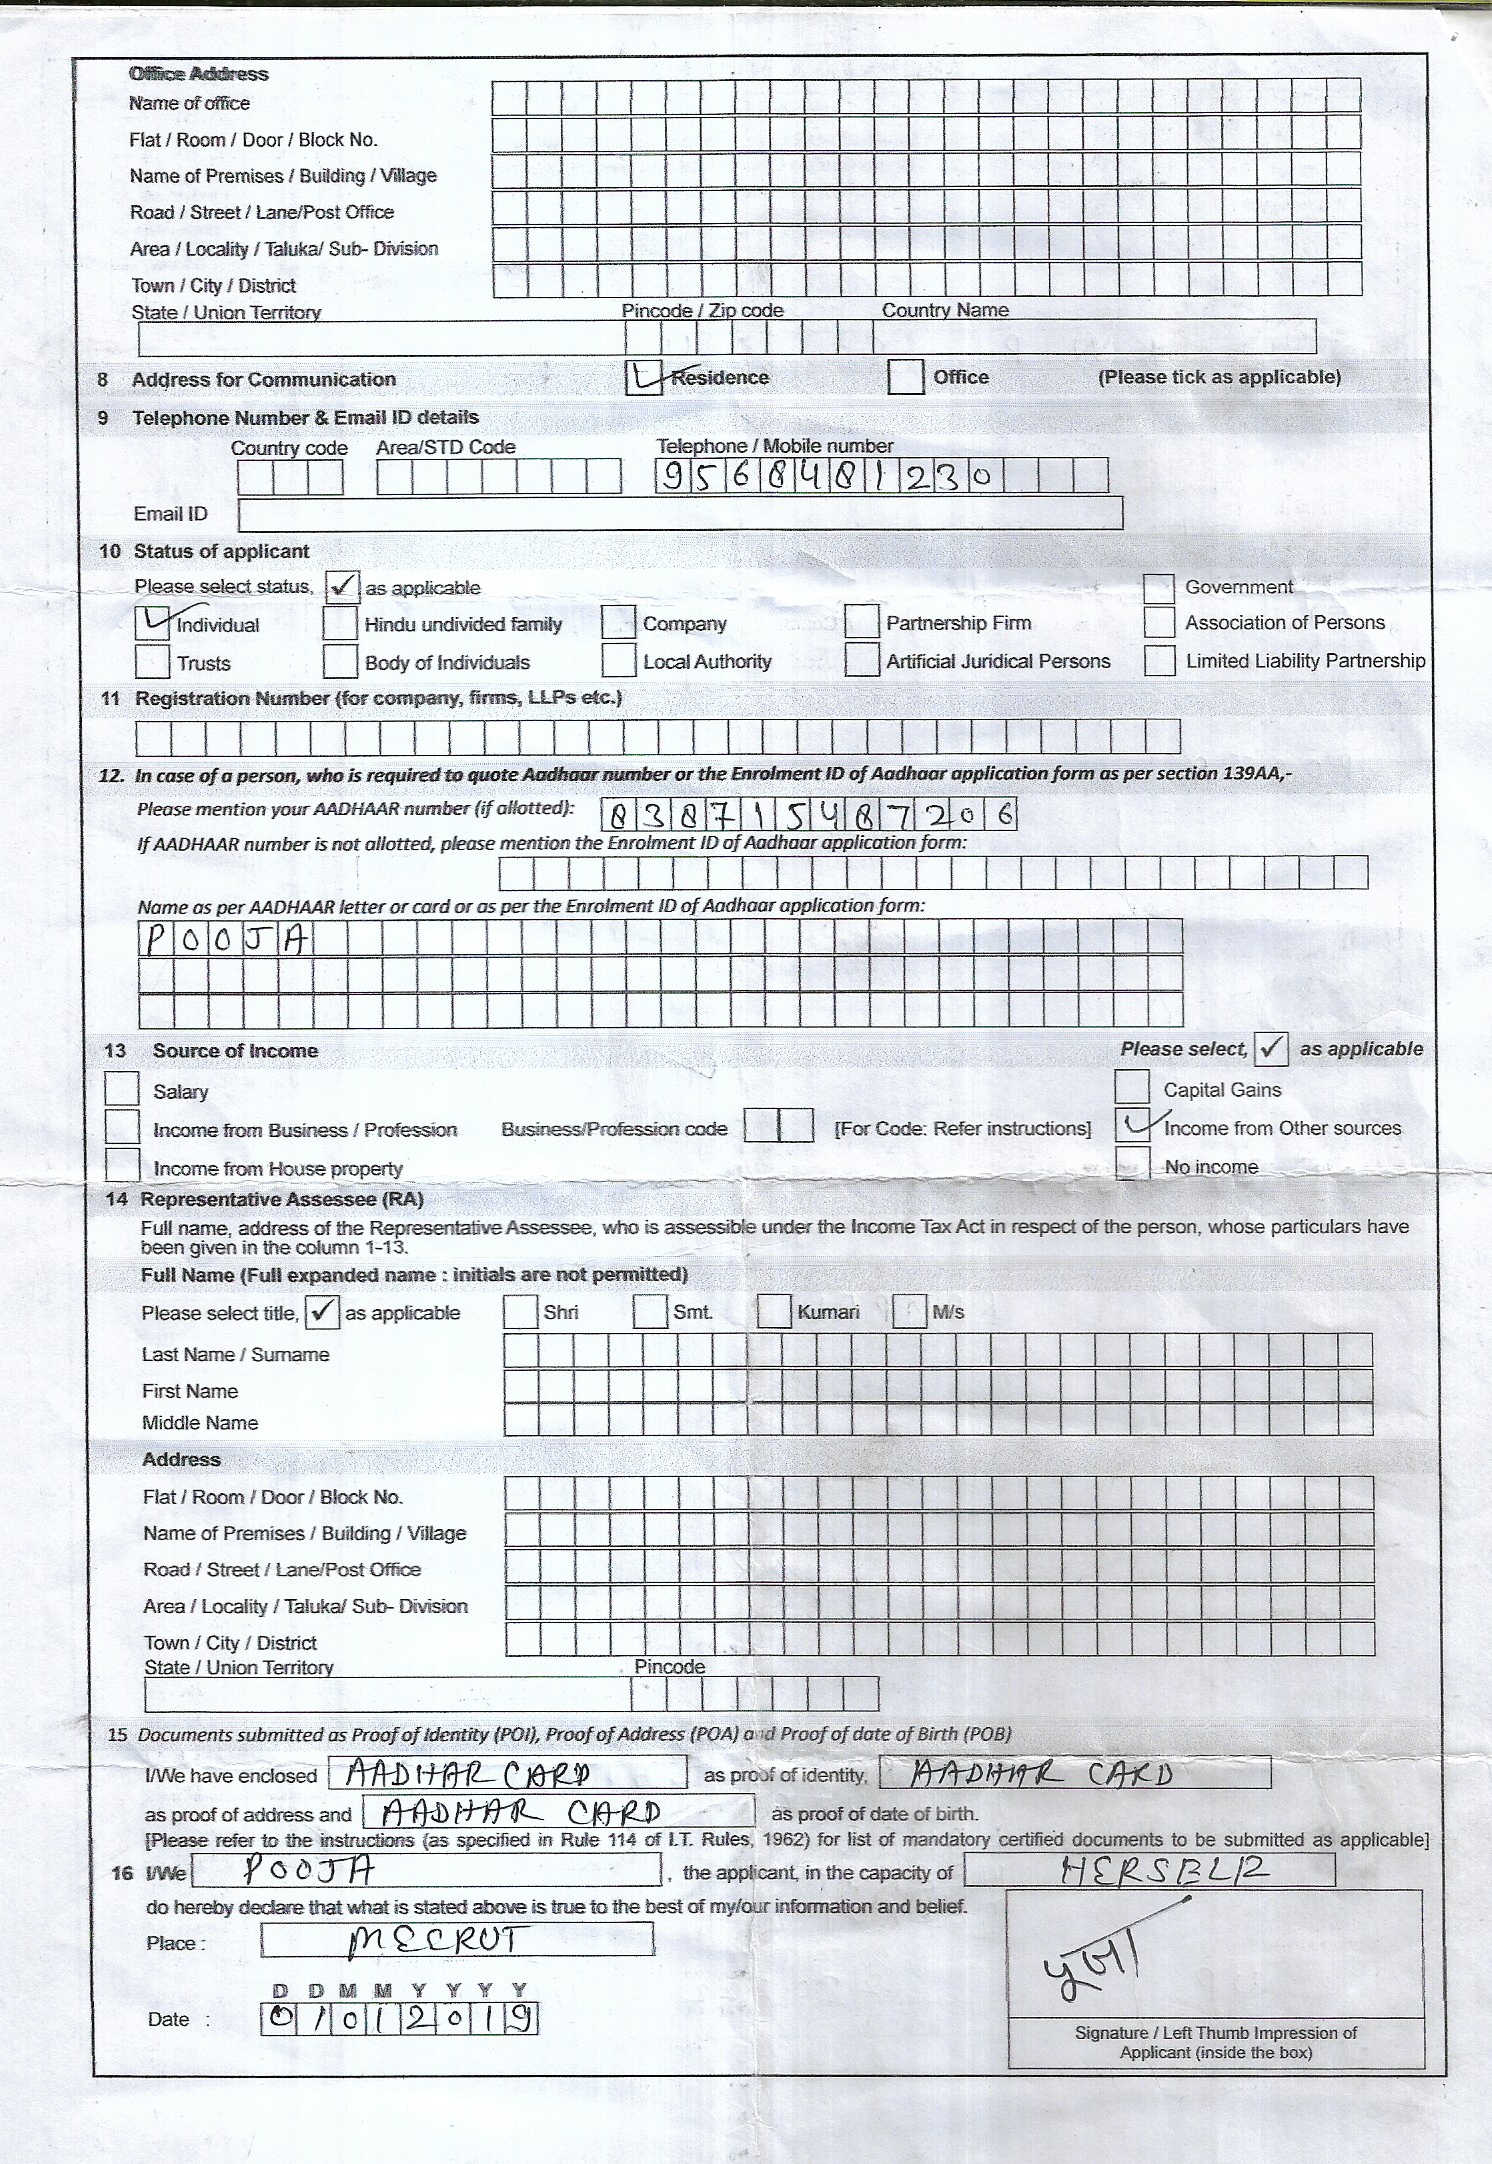 Office Address
Name of office
Flat / Room / Door / Block No.
Name of Premises / Building / Village
Road / Street / Lane/Post Office
Area / Locality / Taluka/ Sub- Division
Town / City / District
State / Union Territory Pincode / Zip code Country Name
8 Address for Communication Residence Office (Please tick as applicable)
9 Telephone Number & Email ID details
Country code Area/STD Code Telephone / Mobile number
9568481230
Email ID
10 Status of applicant
Please select status, ✓ as applicable Government
Individual Hindu undivided family Company Partnership Firm Association of Persons
Trusts Body of Individuals Local Authority Artificial Juridical Persons Limited Liability Partnership
11 Registration Number (for company, firms, LLPs etc.)
12. In case of a person, who is required to quote Aadhaar number or the Enrolment ID of Aadhaar application form as per section 139AA,-
Please mention your AADHAAR number (if allotted): 838715487206
If AADHAAR number is not allotted, please mention the Enrolment ID of Aadhaar application form:
Name as per AADHAAR letter or card or as per the Enrolment ID of Aadhaar application form:
POOJA
13 Source of Income Please select, ✓ as applicable
Salary Capital Gains
Income from Business / Profession Business/Profession code [For Code: Refer instructions] Income from Other sources
Income from House property No income
14 Representative Assessee (RA)
Full name, address of the Representative Assessee, who is assessible under the Income Tax Act in respect of the person, whose particulars have
been given in the column 1-13.
Full Name (Full expanded name : initials are not permitted)
Please select title, ✓ as applicable Shri Smt. Kumari M/s
Last Name / Surname
First Name
Middle Name
Address
Flat / Room / Door / Block No.
Name of Premises / Building / Village
Road / Street / Lane/Post Office
Area / Locality / Taluka/ Sub- Division
Town / City / District
State / Union Territory Pincode
15 Documents submitted as Proof of Identity (POI), Proof of Address (POA) and Proof of date of Birth (POB)
I/We have enclosed AADHAR CARD as proof of identity, AADHAR CARD
as proof of address and AADHAR CARD as proof of date of birth.
[Please refer to the instructions (as specified in Rule 114 of I.T. Rules, 1962) for list of mandatory certified documents to be submitted as applicable]
16 I/We POOJA , the applicant, in the capacity of HERSELF
do hereby declare that what is stated above is true to the best of my/our information and belief.
Place : MEERUT
पूजा
D D M M Y Y Y Y
Date : 01012019
Signature / Left Thumb Impression of
Applicant (inside the box)